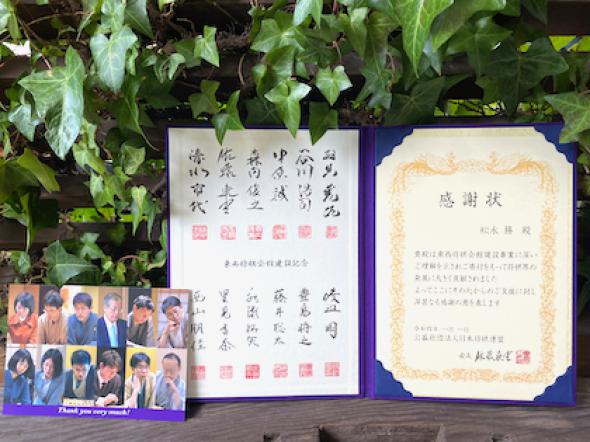 羽生善治
谷川浩司
中原誠
森内俊之
佐藤康光
清水市代
東西将棋会館建設記念
渡辺明
豊島将之
藤井聡太
永瀬拓矢
里見香奈
西山朋佳
感謝状
松永 殿
貴殿は東西将棋会館建設事業に深い
ご理解を示されご寄付をもって将棋界の
発展に大きく貢献されました
よってここにその心からのご支援に対し
深甚なる感謝の意を表します
公益社団法人日本将棋連盟
会長 佐藤康光
Thank you very much!